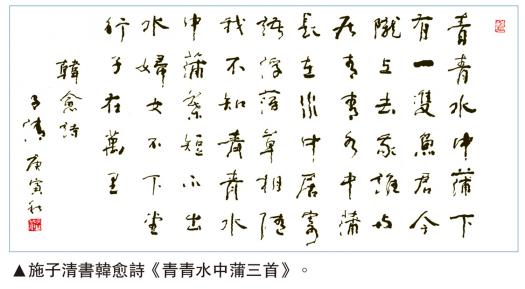 青青水中蒲下
有一雙魚君今
隴上去我誰与
居青青水中蒲
長在水中居寄
語浮萍草相隨
我不知青青水
中蒲葉短不出
水婦女不下堂
行子在萬里
韓愈詩
子清 庚寅秋
▲施子清書韓愈詩《青青水中蒲三首》。